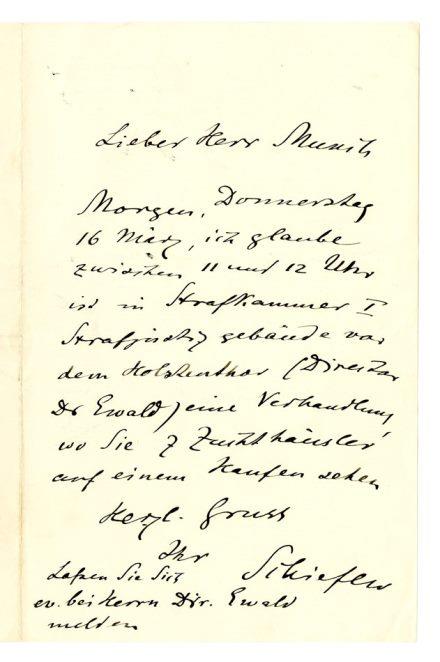 Lieber Herr Munch
Morgen, Donnerstag
16 März, ich glaube
zwischen 11 und 12 Uhr
ist in Strafkammer I
Strafjustizgebäude vor
dem Holstenthor (Direktor
Dr Ewald) eine Verhandlung
wo Sie 7 Zuchthäusler
auf einem Haufen sehen
Herzl. Gruss
Ihr
Schiefler
Laßen Sie Sich
ev. bei Herrn Dir. Ewald
melden